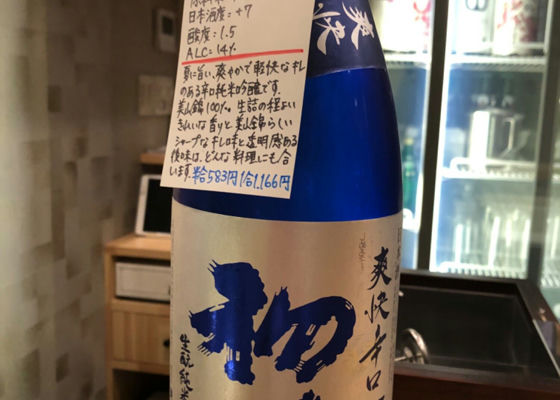 日本酒度=+7
酸度=1.5
ALC=14%
夏に旨い、爽やかで軽快なキレ
のある辛口純米吟醸です。
美山錦100%。生詰の程よい
きれいな香りと、美山錦らしい
シャープなキレ味と透明感ある
後味は、どんな料理にも合
います。半合583円 1合1,166円
爽快
爽快辛口
初
生酛純米